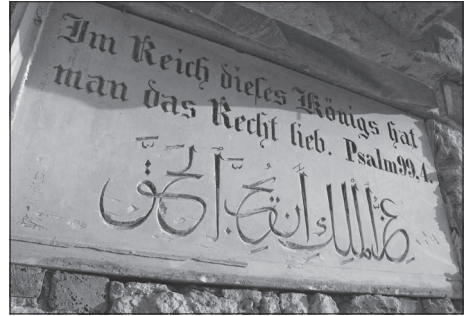 Im Reich dieſes Königs hat
man das Recht lieb. Psalm 99.4.
عزّ الملك أن يحبّ الحقّ